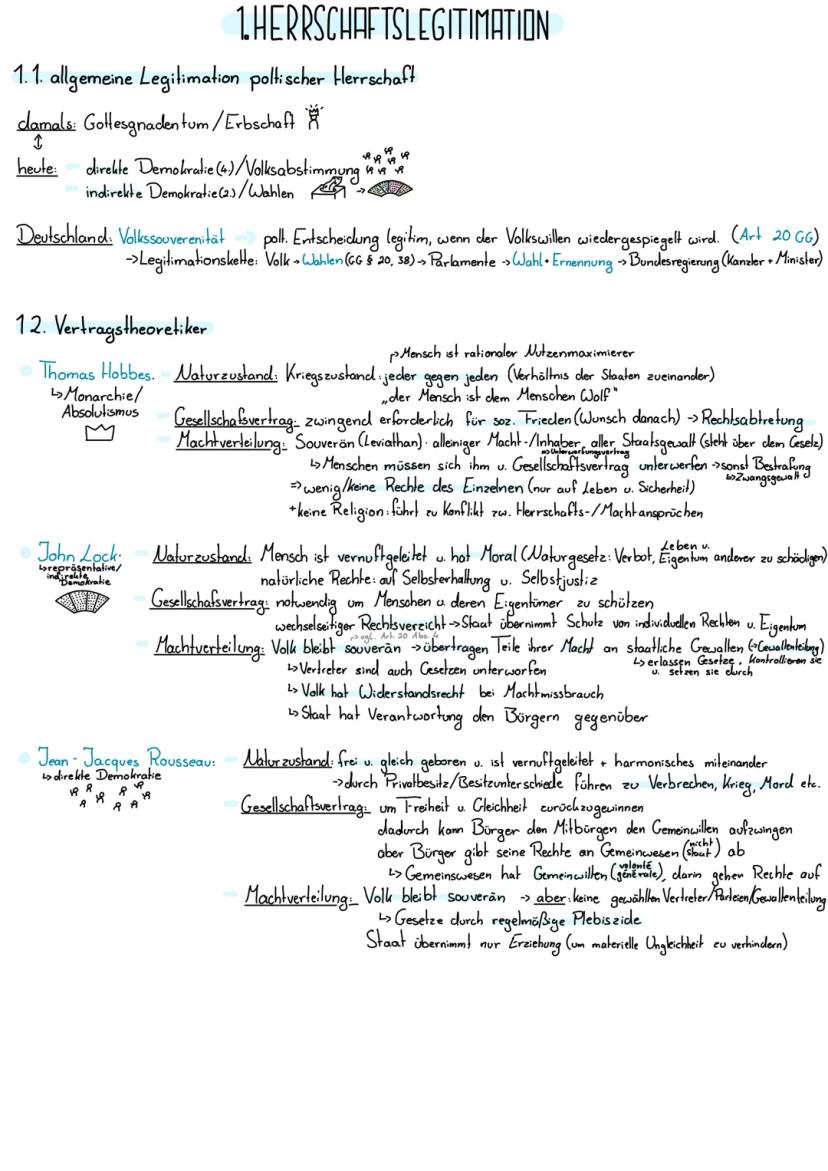 1. HERRSCHAFTSLEGITIMATION
1.1. allgemeine Legitimation poltischer Herrschaft
damals: Gottesgnadentum/Erbschaft
heute: direkte Demokratie (4.)/Volksabstimmung
indirekte Demokratie (2.)/Wahlen →
Deutschland: Volkssouverenität → polt. Entscheidung legitim, wenn der Volkswillen wiedergespiegelt wird. (Art 20 GG)
→Legitimationskette: Volk → Wahlen (GG § 20, 38) → Parlamente → Wahl + Ernennung → Bundesregierung (Kanzler + Minister)
1 2. Vertragstheoretiker
↱Mensch ist rationaler Nutzenmaximierer
Thomas Hobbes. Naturzustand: Kriegszustand: jeder gegen jeden (Verhältnis der Staaten zueinander)
↳Monarchie/ „der Mensch ist dem Menschen Wolf"
Absolutismus
Gesellschafsvertrag: zwingend erforderlich für soz. Frieden (Wunsch danach) → Rechtsabtretung
Machtverteilung: Souverän (Leviathan): alleiniger Macht-/Inhaber aller Staatsgewalt (steht über dem Gesetz)
=> Unterwerfungsvertrag
↳Menschen müssen sich ihm u. Gesellschaftsvertrag unterwerfen →sonst Bestrafung
↳Zwangsgewalt
=> wenig/keine Rechte des Einzelnen (nur auf Leben u. Sicherheit)
+keine Religion: führt zu Konflikt zw. Herrschafts-/Machtansprüchen
John Lock: Naturzustand: Mensch ist vernuftgeleitet u. hat Moral (Naturgesetz: Verbot, Leben u. Eigentum anderer zu schädigen)
↳repräsentative/
indirekte Demokratie
natürliche Rechte: auf Selbsterhaltung u. Selbstjustiz
Gesellschafsvertrag: notwendig um Menschen u. deren Eigentümer zu schützen
wechselseitiger Rechtsverzicht → Staat übernimmt Schutz von individuellen Rechten u. Eigentum
↱vgl. Art. 20 Abs. 4
Machtverteilung: Volk bleibt souverän → übertragen Teile ihrer Macht an staatliche Gewalten (→Gewaltenteilung)
↳ erlassen Gesetze, kontrollieren sie
u. setzen sie durch
↳Vertreter sind auch Gesetzen unterworfen
↳ Volk hat Widerstandsrecht bei Machtmissbrauch
↳ Staat hat Verantwortung den Bürgern gegenüber
Jean - Jacques Rousseau: Naturzustand: frei u. gleich geboren u. ist vernuftgeleitet + harmonisches miteinander
↳ direkte Demokratie
→durch Privatbesitz/Besitzunterschiede führen zu Verbrechen, Krieg, Mord etc.
Gesellschaftsvertrag: um Freiheit u. Gleichheit zurückzugewinnen
dadurch kann Bürger den Mitbürgen den Gemeinwillen aufzwingen
aber Bürger gibt seine Rechte an Gemeinwesen (nicht Staat) ab
↳ Gemeinswesen hat Gemeinwillen (volonté générale), darin gehen Rechte auf
Machtverteilung: Volk bleibt souverän → aber: keine gewählten Vertreter/Parteien/Gewaltenteilung
↳ Gesetze durch regelmäßige Plebiszide
Staat übernimmt nur Erziehung (um materielle Ungleichheit zu verhindern)